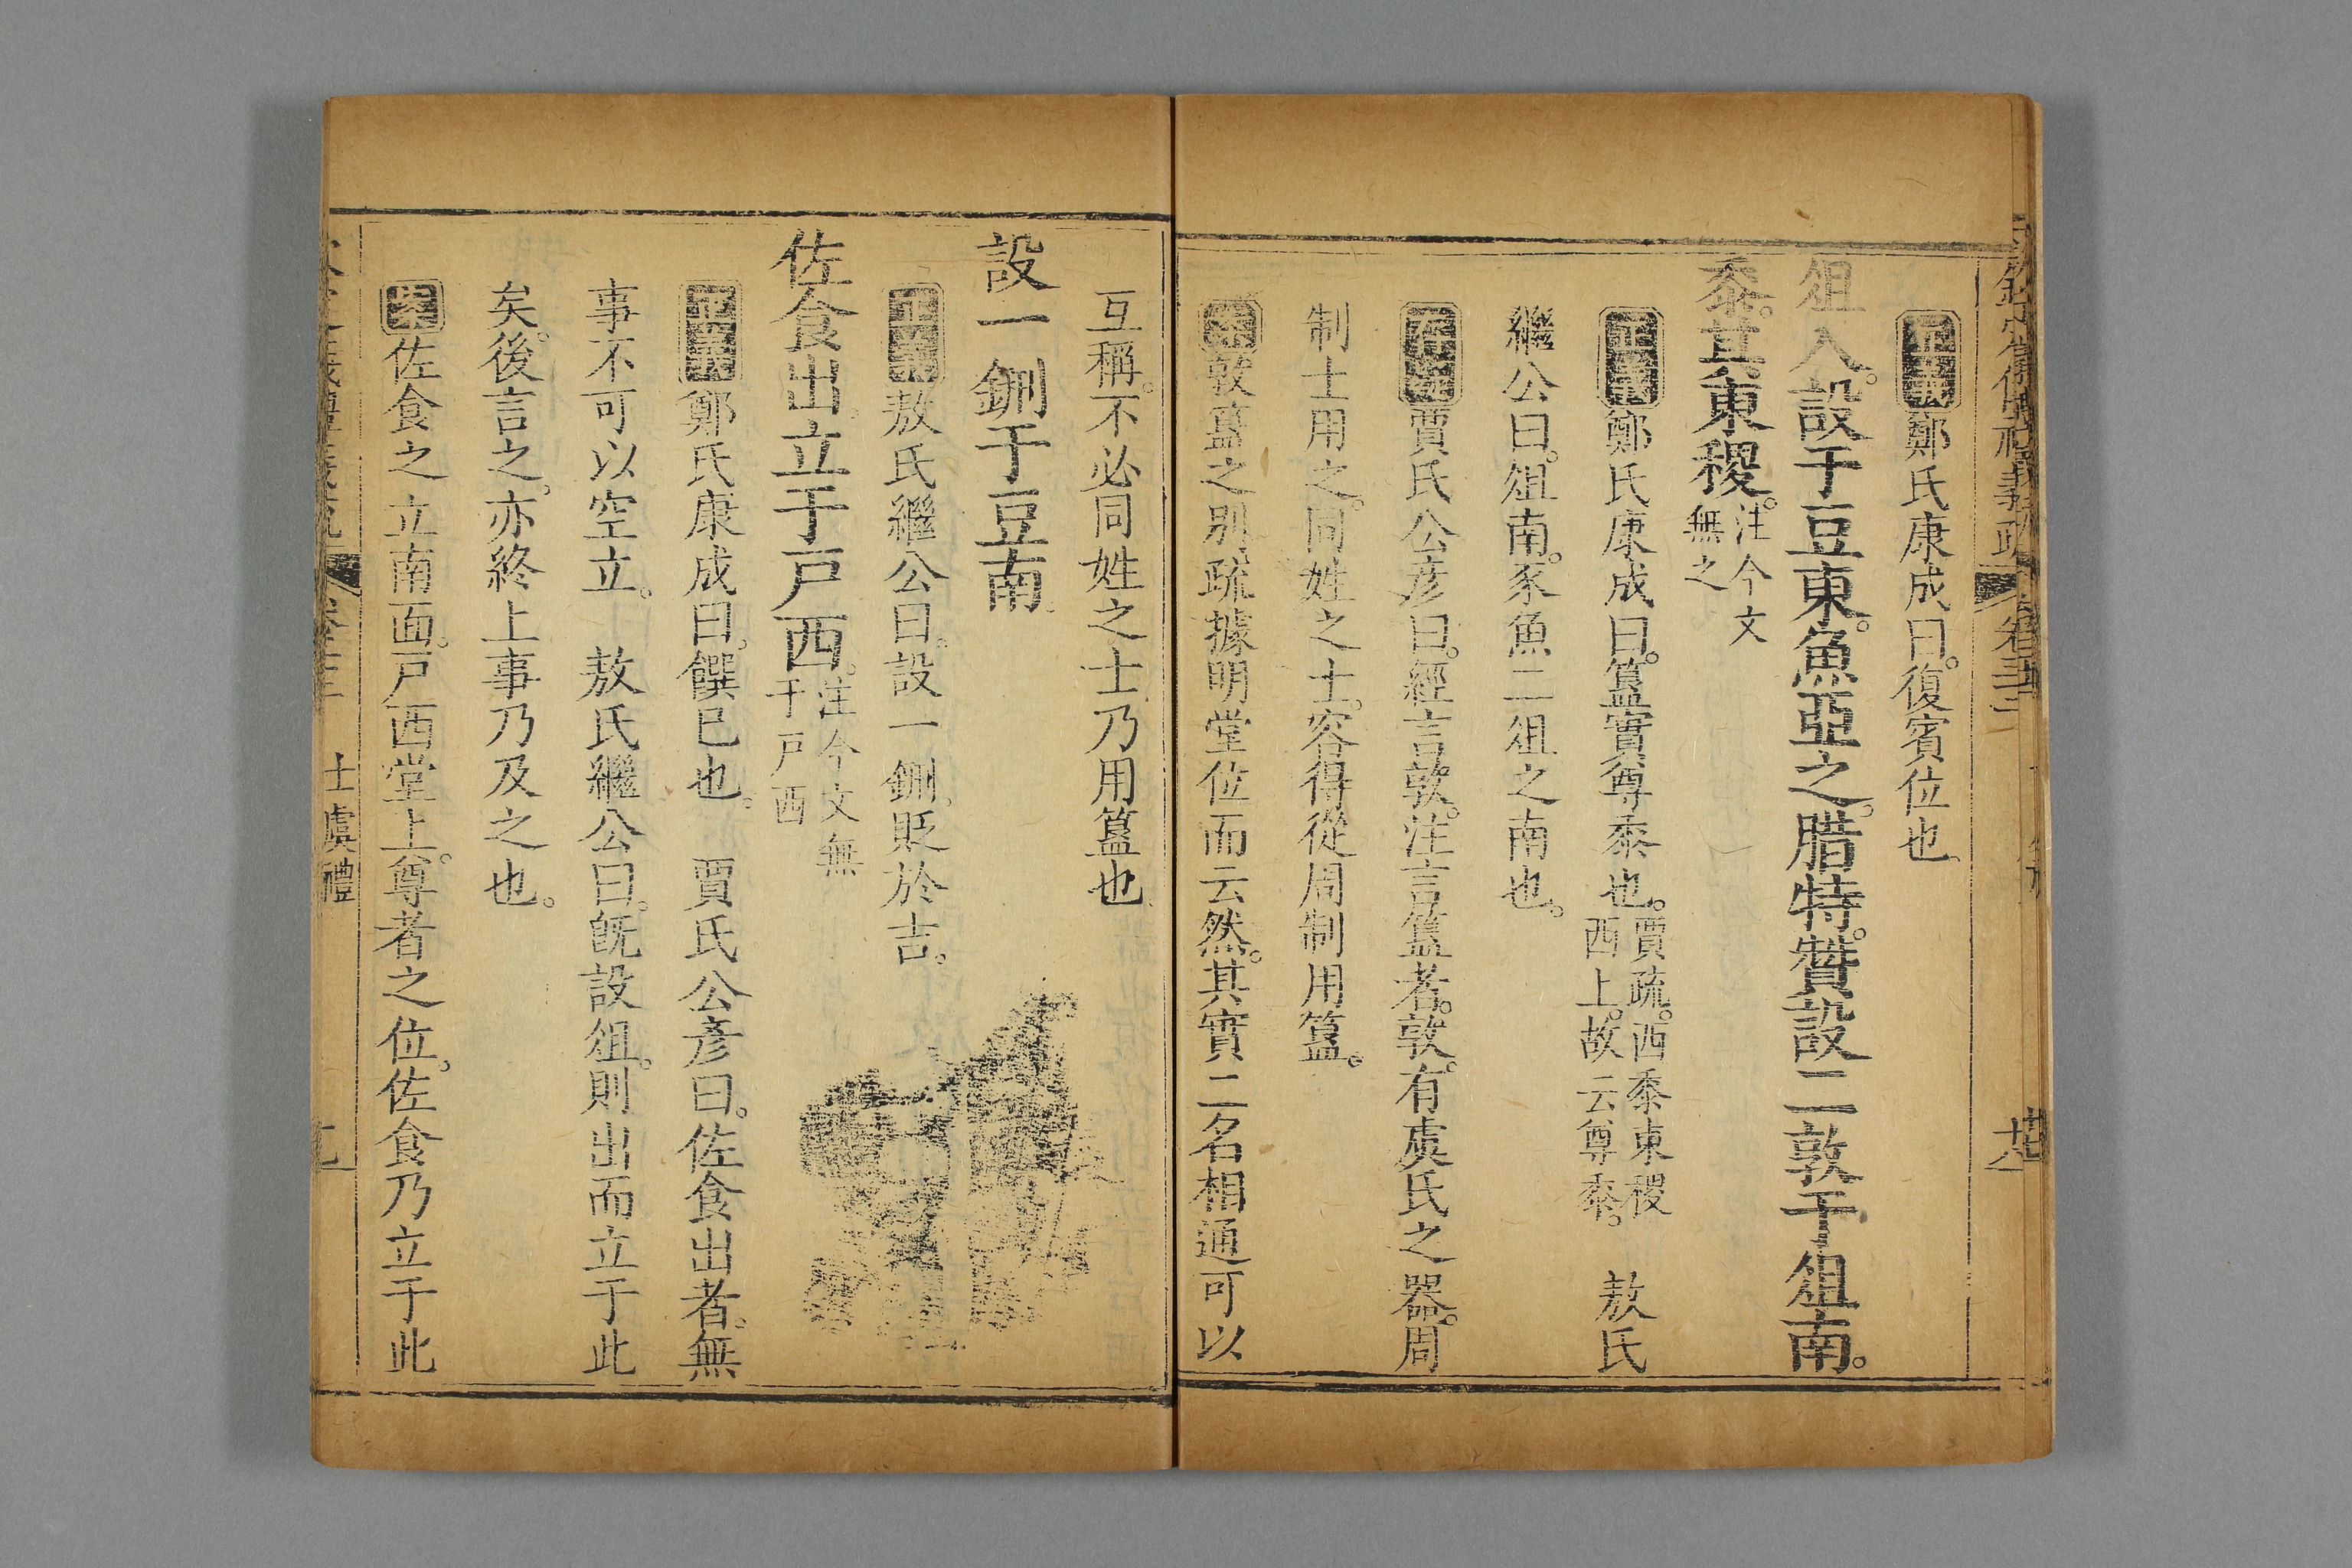 正義鄭氏康成曰。復賓位也
俎入。設于豆東。魚亞之。腊特。贊設二敦于俎南。
黍。其東稷。注今文
無之
正義鄭氏康成曰。簋實尊黍也。賈疏。西黍東稷
西上。故云尊黍。
敖氏
繼公曰。俎南。豕魚二俎之南也。
存疑賈氏公彦曰。經言敦。注言簋者。敦。有虞氏之器。周
制士用之。同姓之士。容得從周制用簋。
案敦簋之別。疏據明堂位而云然。其實二名相通可以
互稱。不必同姓之士乃用簋也
設一鉶于豆南。
正義敖氏繼公曰。設一鉶。貶於吉。
佐食出。立于戸西。注今文無
于戸西
正義鄭氏康成曰。饌已也。 賈氏公彦曰。佐食出者。無
事不可以空立。 敖氏繼公曰。旣設俎。則出而立于此
矣。後言之。亦終上事乃及之也。
案佐食之立南面。戸西堂上。尊者之位。佐食乃立于此
士虞禮